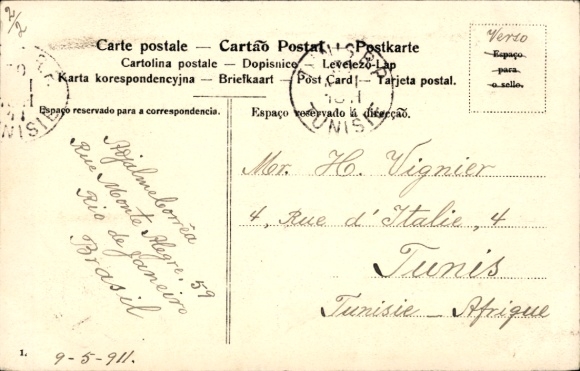 2/2
Carte postale — Cartão Postal — Postkarte
Cartolina postale — Dopisnice — Levelező-Lap
Karta korespondencyjna — Briefkaart — Post Card — Tarjeta postal.
Verso
Espaço
para
o sello.
Espaço reservado para a correspondencia.
Espaço reservado á direcção.
TUNISIE
Rue Monte Alegre, 59
Rio de Janeiro
Brasil
Mr. H. Vignier
4, Rue d'Italie, 4
Tunis
Tunisie — Afrique
1.
9-5-911.